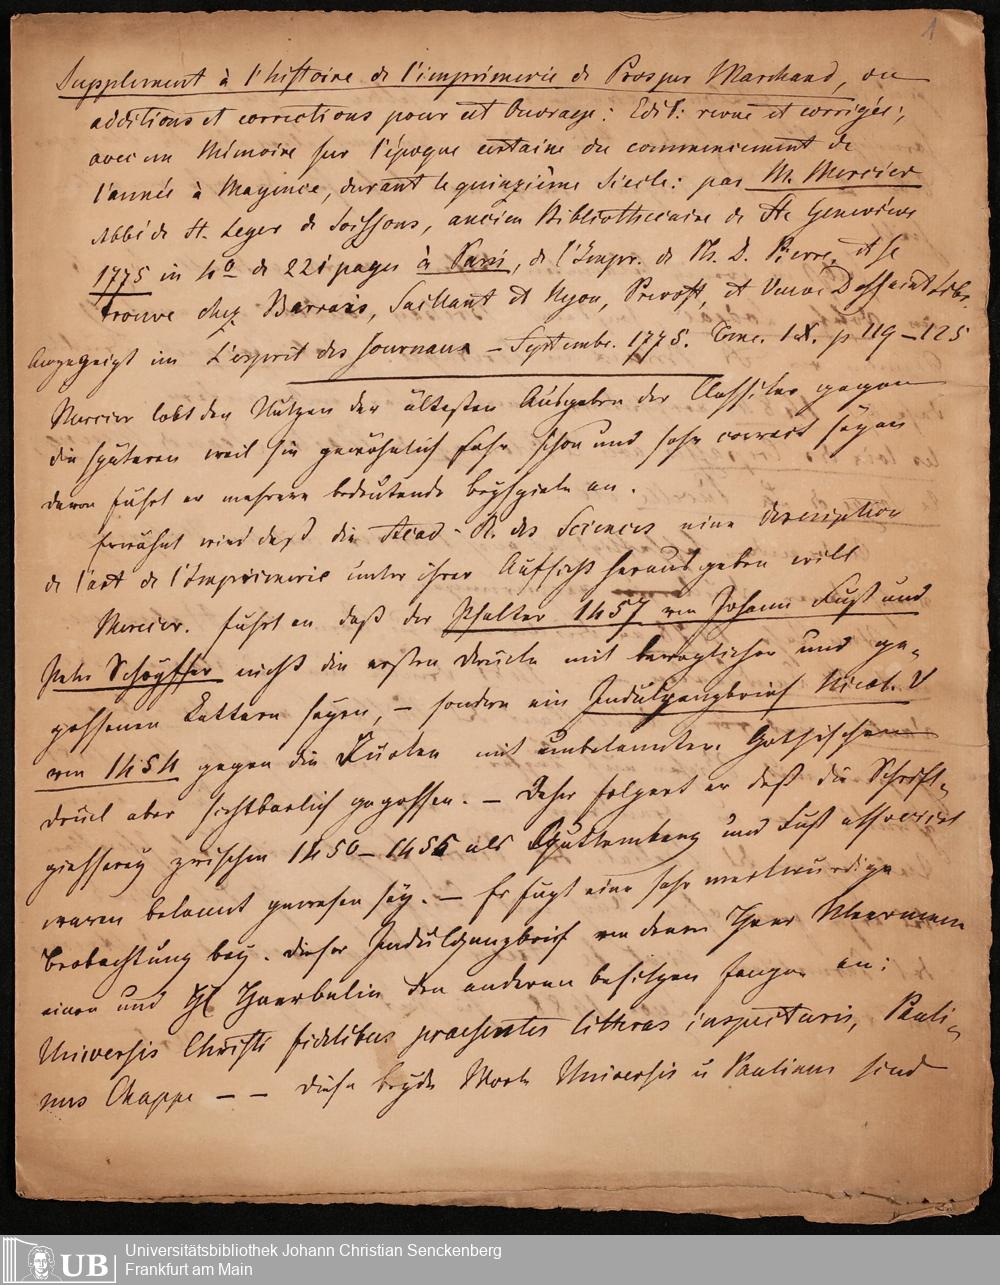 1
Supplement à l'histoire de l'imprimerie de Prosper Marchand, ou
additions et corrections pour cet Ouvrage: Edit: revue et corrigée;
avec un Mémoire sur l'époque certaine du commencement de
l'année à Mayence, durant le quinzième Siecle: par M. Mercier
Abbé de St. Leger de Soissons, ancien Bibliothecaire de Ste Geneviève
1775 in 4o de 221 pages à Paris, de l'Impr. de Ph. D. Pierre, et se
trouve chez Barrois, Saillant et Nyon, Prevost, et Veuve Dessaint Libr.
Angezeigt im L'esprit des Journaux – Septembr. 1775. Tome. IX. p 119–125
Mercier lobt den Nutzen der ältesten Ausgaben der Classiker gegen
die späteren weil sie gewöhnlich sehr schön und sehr correct seyen
davon führt er mehrere bedeutende beyspiele an.
Erwähnt wird daß die Acad. R. des Sciences eine description
de l'art de l'Imprimerie unter ihrer Aufsicht herausgeben will
Mercier. führt an daß der Psalter 1457 von Johann Fust und
Peter Schoyffer nicht die ersten drucke mit beweglichen und ge-
gossenen Lettern seyen, – sondern ein Indulgenzbrief Nicol. V
von 1454 gegen die Türken mit unbekannter Gothischen
druck aber sichtbarlich gegossen. – Daher folgert er daß die Schrift-
giesserey zwischen 1450–1455 als Guttemberg und Fust associirt
waren bekannt gewesen sey. – Er fügt eine sehr merkwürdige
Beobachtung bey. dieser Indulgenzbrief von denen Herr Meermann
einen und H Haerbelin den anderen besitzen fangen an:
Universis Christi fidelibus praesentes litteras inspecturis, Pauli-
nus Chappe – – diese beyde Worte Universis u Paulinus sind
UB
Universitätsbibliothek Johann Christian Senckenberg
Frankfurt am Main